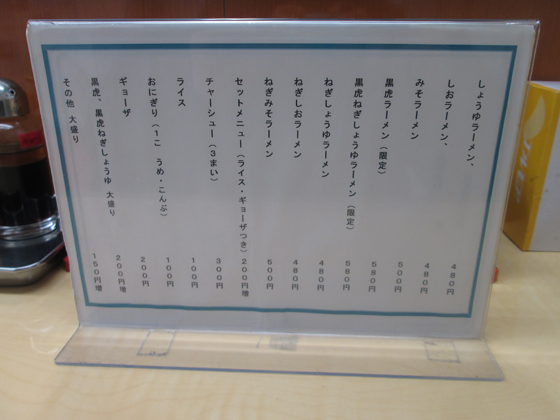 しょうゆラーメン、 480円
しおラーメン、 480円
みそラーメン 500円
黒虎ラーメン（限定） 580円
黒虎ねぎしょうゆラーメン（限定） 580円
ねぎしょうゆラーメン 480円
ねぎしおラーメン 480円
ねぎみそラーメン 500円
セットメニュー（ライス・ギョーザつき） 200円増
チャーシュー（3まい） 300円
ライス 100円
おにぎり（1こ うめ・こんぶ） 100円
ギョーザ 200円
黒虎、黒虎ねぎしょうゆ 大盛り 200円増
その他 大盛り 150円増